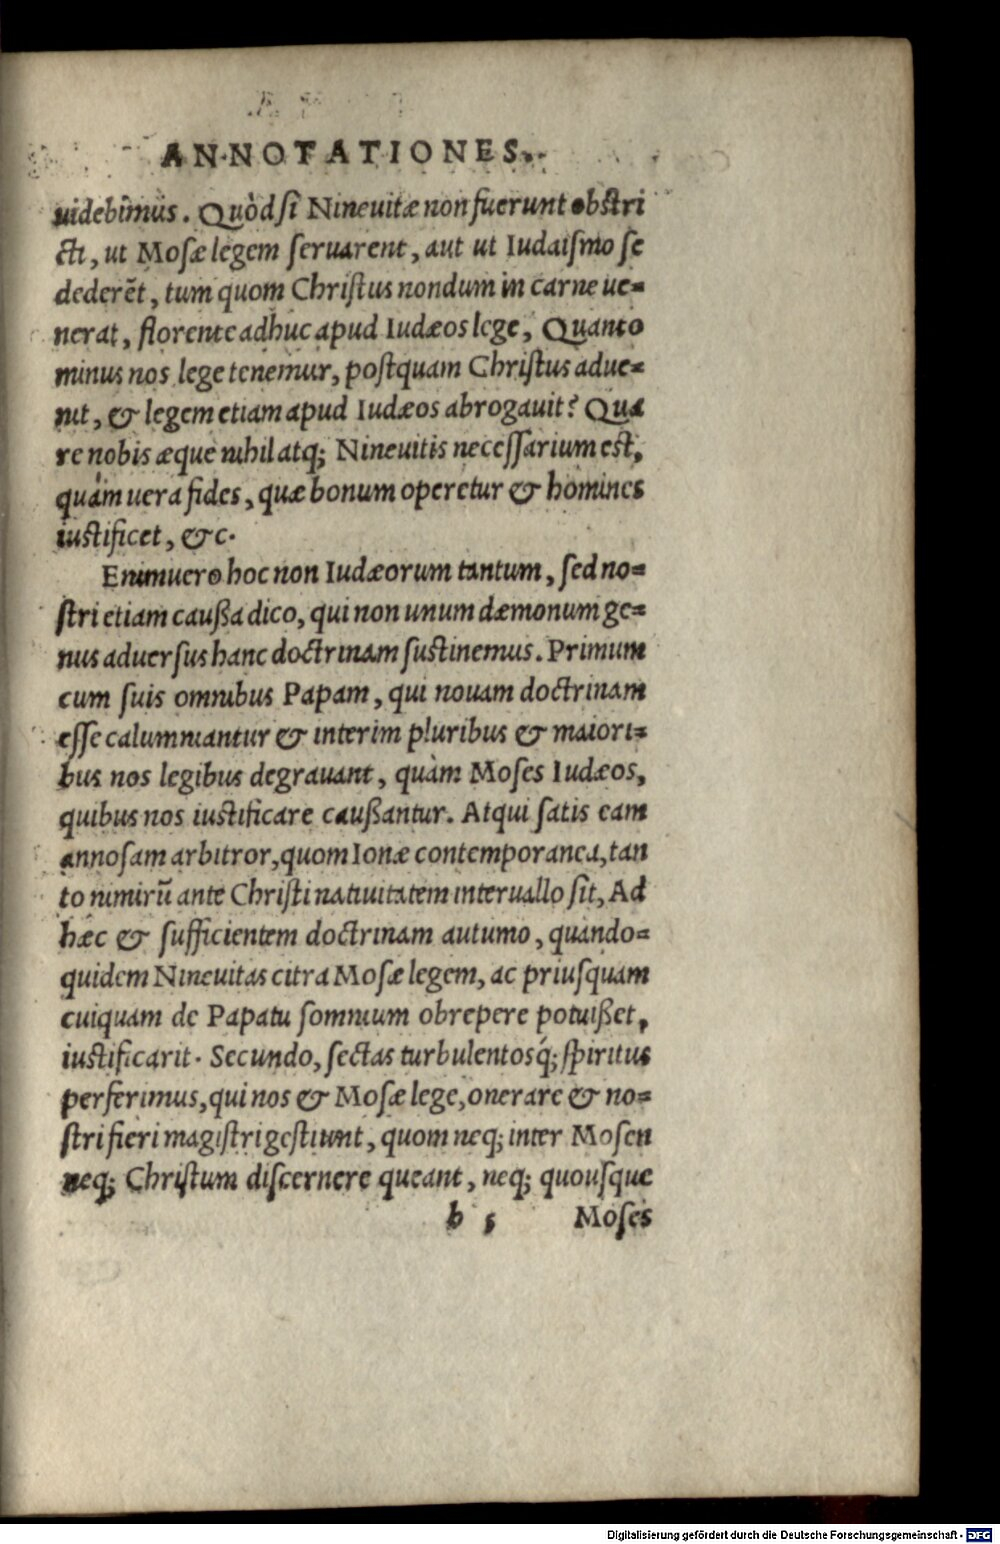 ANNOTATIONES.
uidebimus. Quòd si Nineuitæ non fuerunt obstri
cti, ut Mosæ legem seruarent, aut ut Iudaismo se
dederēt, tum quom Christus nondum in carne ue=
nerat, florente adhuc apud Iudæos lege, Quanto
minus nos lege tenemur, postquam Christus adue=
nit, & legem etiam apud Iudæos abrogauit? Qua
re nobis æque nihil atq; Nineuitis necessarium est,
quàm uera fides, quæ bonum operetur & homines
iustificet, &c.
Enimuero hoc non Iudæorum tantum, sed no=
stri etiam caußa dico, qui non unum dæmonum ge=
nus aduersus hanc doctrinam sustinemus. Primum
cum suis omnibus Papam, qui nouam doctrinam
esse calumniantur & interim pluribus & maiori=
bus nos legibus degrauant, quàm Moses Iudæos,
quibus nos iustificare caußantur. Atqui satis eam
annosam arbitror, quom Ionæ contemporanea, tan
to nimirū ante Christi natiuitatem interuallo sit, Ad
hæc & sufficientem doctrinam autumo, quando=
quidem Nineuitas citra Mosæ legem, ac priusquam
cuiquam de Papatu somnium obrepere potuißet,
iustificarit. Secundo, sectas turbulentosq́; spiritus
perferimus, qui nos & Mosæ lege, onerare & no=
stri fieri magistri gestiunt, quom neq; inter Mosen
neq; Christum discernere queant, neq; quousque
b 5 Moses
Digitalisierung gefördert durch die Deutsche Forschungsgemeinschaft - DFG